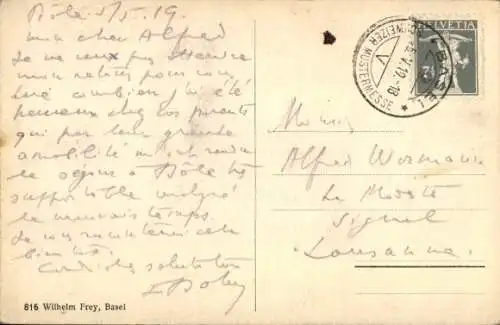 Bôle 5/5. 19.
Mon cher Alfred
Je ne veux pas attendre
mon retour pour vous
dire combien j'ai été
heureux chez vos parents
qui par leur grande
amabilité m'ont rendu
le séjour à Bôle très
supportable malgré
le mauvais temps.
Je vous raconterai cela
bientôt.
Cordiales salutations
816 Wilhelm Frey, Basel
HELVETIA
SCHWEIZER MUSTERMESSE
BASEL 1
V.19.-18
V
Monsieur
Alfred Wormann
La
Signal
Lausanne.